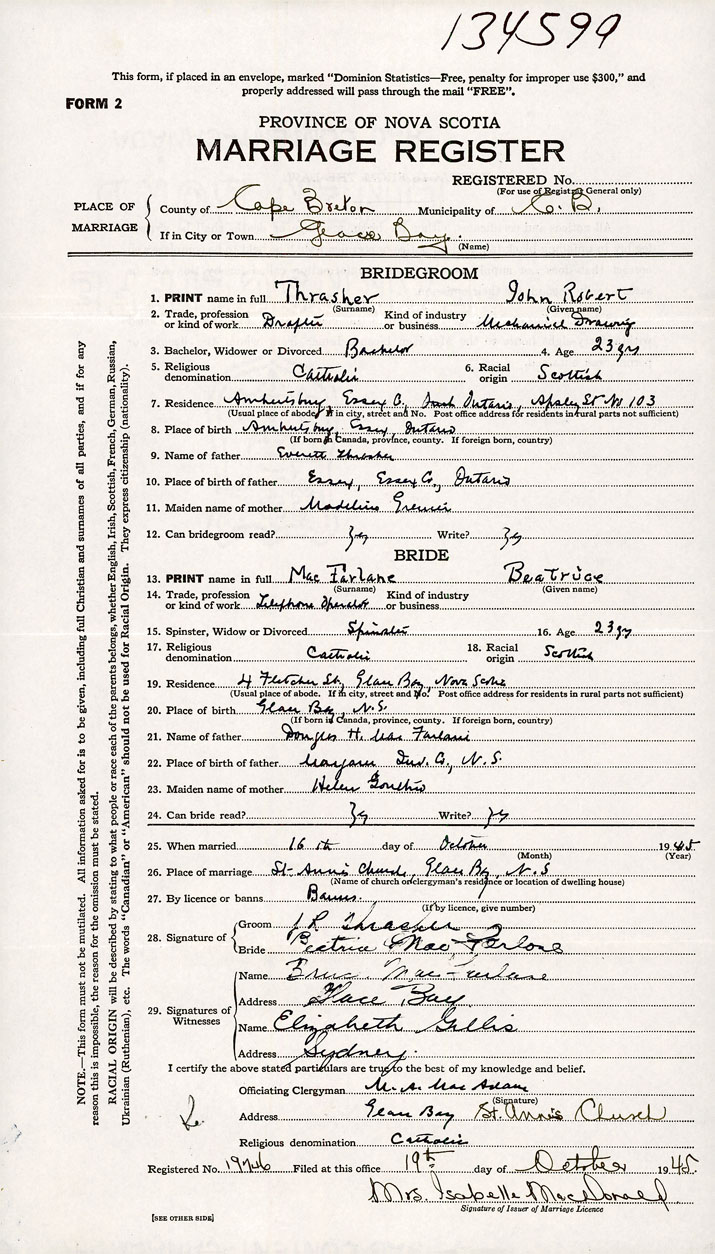 134599
This form, if placed in an envelope, marked “Dominion Statistics—Free, penalty for improper use $300,” and
properly addressed will pass through the mail “FREE”.
FORM 2
PROVINCE OF NOVA SCOTIA
MARRIAGE REGISTER
REGISTERED No.
(For use of Registrar General only)
PLACE OF MARRIAGE
County of Cape Breton Municipality of C. B.
If in City or Town Glace Bay.
(Name)
BRIDEGROOM
1. PRINT name in full Thrasher John Robert
(Surname) (Given name)
2. Trade, profession or kind of work Drafter Kind of industry or business Mechanical Drawing
3. Bachelor, Widower or Divorced Bachelor 4. Age 23 yrs
5. Religious denomination Catholic 6. Racial origin Scottish
7. Residence Amherstburg, Essex Co, Ontario, Apsley St No 103
(Usual place of abode. If in city, street and No. Post office address for residents in rural parts not sufficient)
8. Place of birth Amherstburg, Essex, Ontario
(If born in Canada, province, county. If foreign born, country)
9. Name of father Everett Thrasher
10. Place of birth of father Essex, Essex Co, Ontario
11. Maiden name of mother Madeline
12. Can bridegroom read? yes Write? yes
BRIDE
13. PRINT name in full Mac Farlane Beatrice
(Surname) (Given name)
14. Trade, profession or kind of work Telephone Operator Kind of industry or business
15. Spinster, Widow or Divorced Spinster 16. Age 23 yrs
17. Religious denomination Catholic 18. Racial origin Scottish
19. Residence 4 Fletcher St., Glace Bay, Nova Scotia
(Usual place of abode. If in city, street and No. Post office address for residents in rural parts not sufficient)
20. Place of birth Glace Bay, N.S.
(If born in Canada, province, county. If foreign born, country)
21. Name of father Douglas H. Mac Farlane
22. Place of birth of father Margaree Inv. Co., N.S.
23. Maiden name of mother Helen
24. Can bride read? yes Write? yes
25. When married 16th day of October 1945
(Month) (Year)
26. Place of marriage St. Anne's Church, Glace Bay, N.S
(Name of church or clergyman's residence or location of dwelling house)
27. By licence or banns Banns.
(If by licence, give number)
28. Signature of Groom J R Thrasher
Bride Beatrice Mac Farlane
29. Signatures of Witnesses
Name MacFarlane
Address Glace Bay
Name Elizabeth Gillis
Address Sydney.
I certify the above stated particulars are true to the best of my knowledge and belief.
Officiating Clergyman M. A. Mac Adam
(Signature)
Address Glace Bay St. Anne's Church
Religious denomination Catholic
Registered No. 1926 Filed at this office 19th day of October 1945
Mrs. Isabelle MacDonald
Signature of Issuer of Marriage Licence
[SEE OTHER SIDE]
NOTE.—This form must not be mutilated. All information asked for is to be given, including full Christian and surnames of all parties, and if for any
reason this is impossible, the reason for the omission must be stated.
RACIAL ORIGIN will be described by stating to what people or race each of the parents belongs, whether English, Irish, Scottish, French, German, Russian,
Ukrainian (Ruthenian), etc. The words “Canadian” or “American” should not be used for Racial Origin. They express citizenship (nationality).